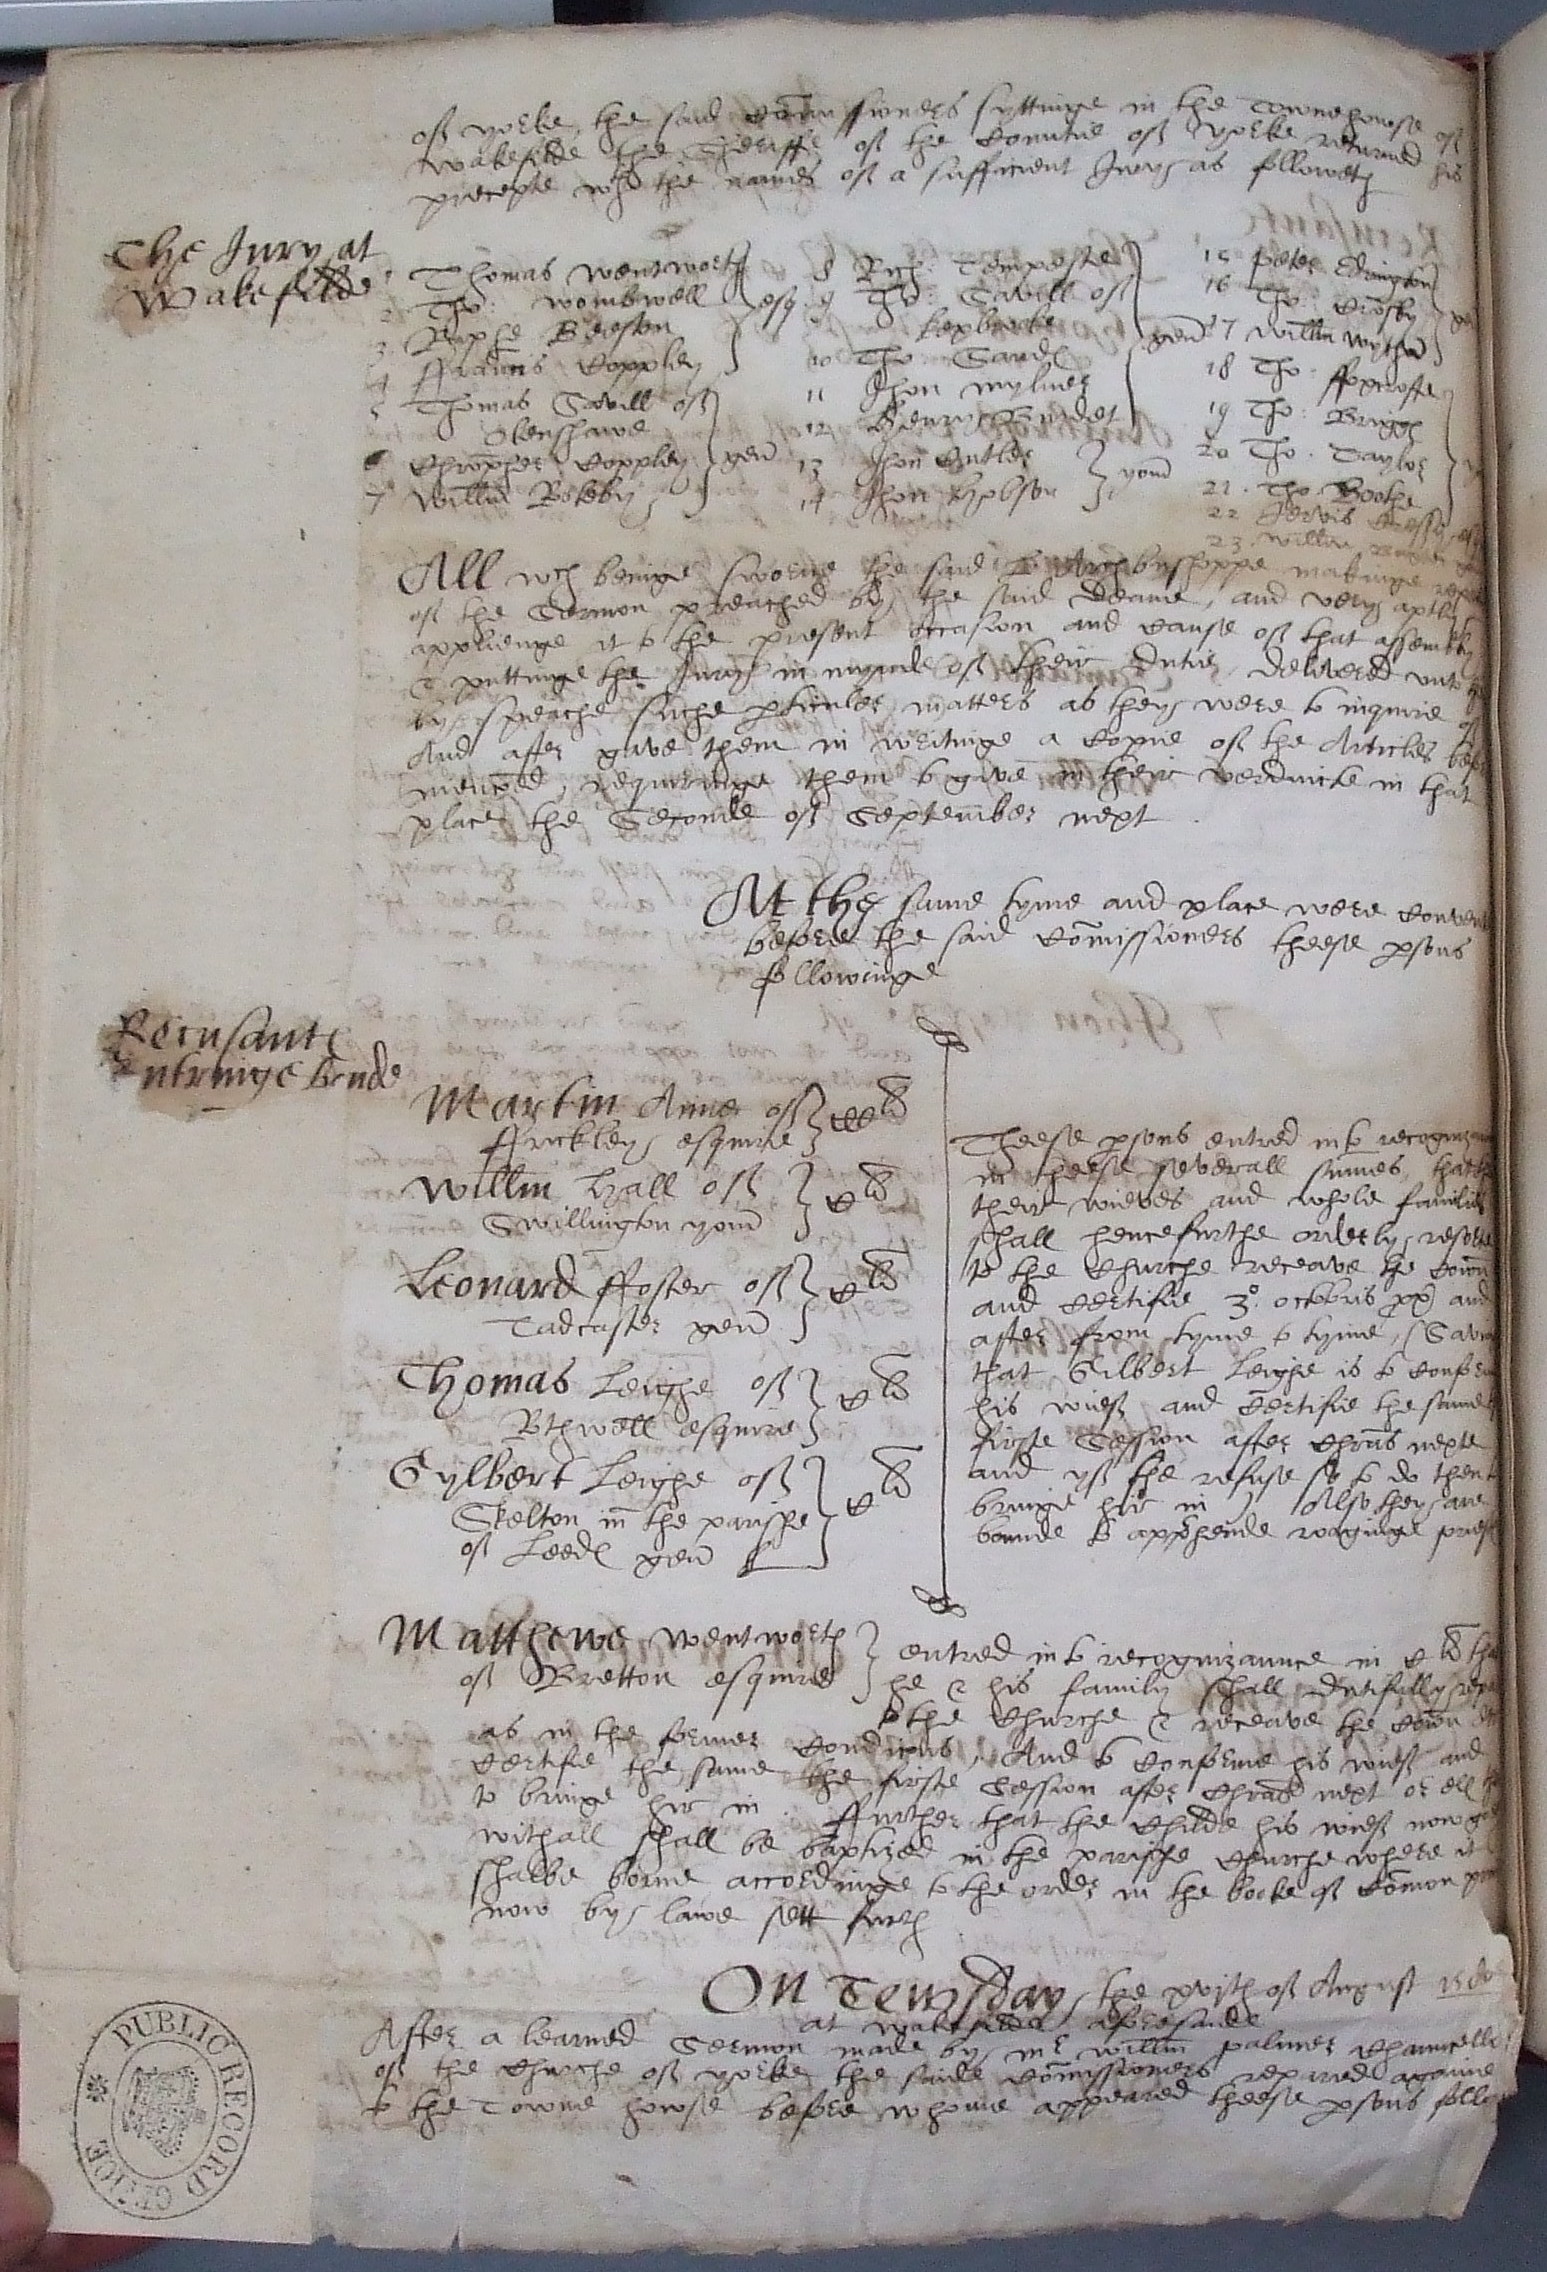 of yorke, the said Comissioners syttinge in the Townehowse of
Wakefelde the Sheriffe of the Countie of Yorke returned his
precepte wth the names of a sufficient Jury as followeth
The Jury at
Wakefelde
1 Thomas wentworth
2 Tho: wombwell
3 Raphe Beeston
4 ffrancis Coppley
esq
5 Thomas Savill of
6 Chropher Coppley
7 Willm Rokeby
gen
8 Rich: Tempeste
9 Tho: Savill of
10 Tho Sands
11 Jhon mylner
12 Henry Burdet
gen
13 Jhon Cutler
14 Jhon Hobson
yom
15 Peter
16 Tho: Crosby
17 Willm
18 Tho: ffoxcrofte
19 Tho: Brigge
20 Tho. Taylor
21. Tho. Boothe
22 Jervis
23. Willm
All wch beinge sworne the said L. Archbusshoppe makinge
of the Sermon preached by the said Deane, and very aptly
applienge it to the present occasion and cause of that assembly
& puttinge the Jury in mynde of their dutie, delivered unto
by speache suche pticuler matters as they were to inquire of
And after gave them in writinge a Copie of the Articles
menconed, requiringe them to give in their verduicte in that
place the Seconde of September next.
At the same tyme and place were
before the said Comissioners theese psons
followinge
Recusants
entringe bonde
Martin Anne of
ffrickley esquire
Willm Hall of
Swillington yom
Leonard ffoster of
Tadcaster gen
Thomas Leighe of
Rthwell esquire
Gylbert Leighe of
Skelton in the parishe
of Leeds gen
Theese psons entred into
in theese severall sumes,
their wieves and whole families
shall hencefurthe orderly resorte
to the Churche receave the Coion
and certifie 3o. octobris px and
after from tyme to tyme, (
that Gilbert Leighe is to
his wief and Certifie the same
firste Session after Chrms nexte
and yf she refuse so to do then to
bringe hir in) Also they are
bounde to apphende
Matthewe wentworth
of Bretton esquire
entred into recognizaunce in
he & his family shall dutifully
to the Churche & receave the Coion
as in the former Condicons, And to conferme his wief and
certifie the same the firste Session after Chrms next or els
to bringe hir in. ffurther that the Childe his wief now
withall shall be baptized in the parishe Churche where it
shalbe borne accordinge to the order in the booke of Comon
now by lawe sett furth
On Tewsday the xvjth of August
at wakefelde aforesaide
After a learned Sermon made by mr willm palmer
of the Churche of yorke the saide Comissioners repared againe
to the Towne howse before whome appeared theese psons
PUBLIC RECORD OFFICE